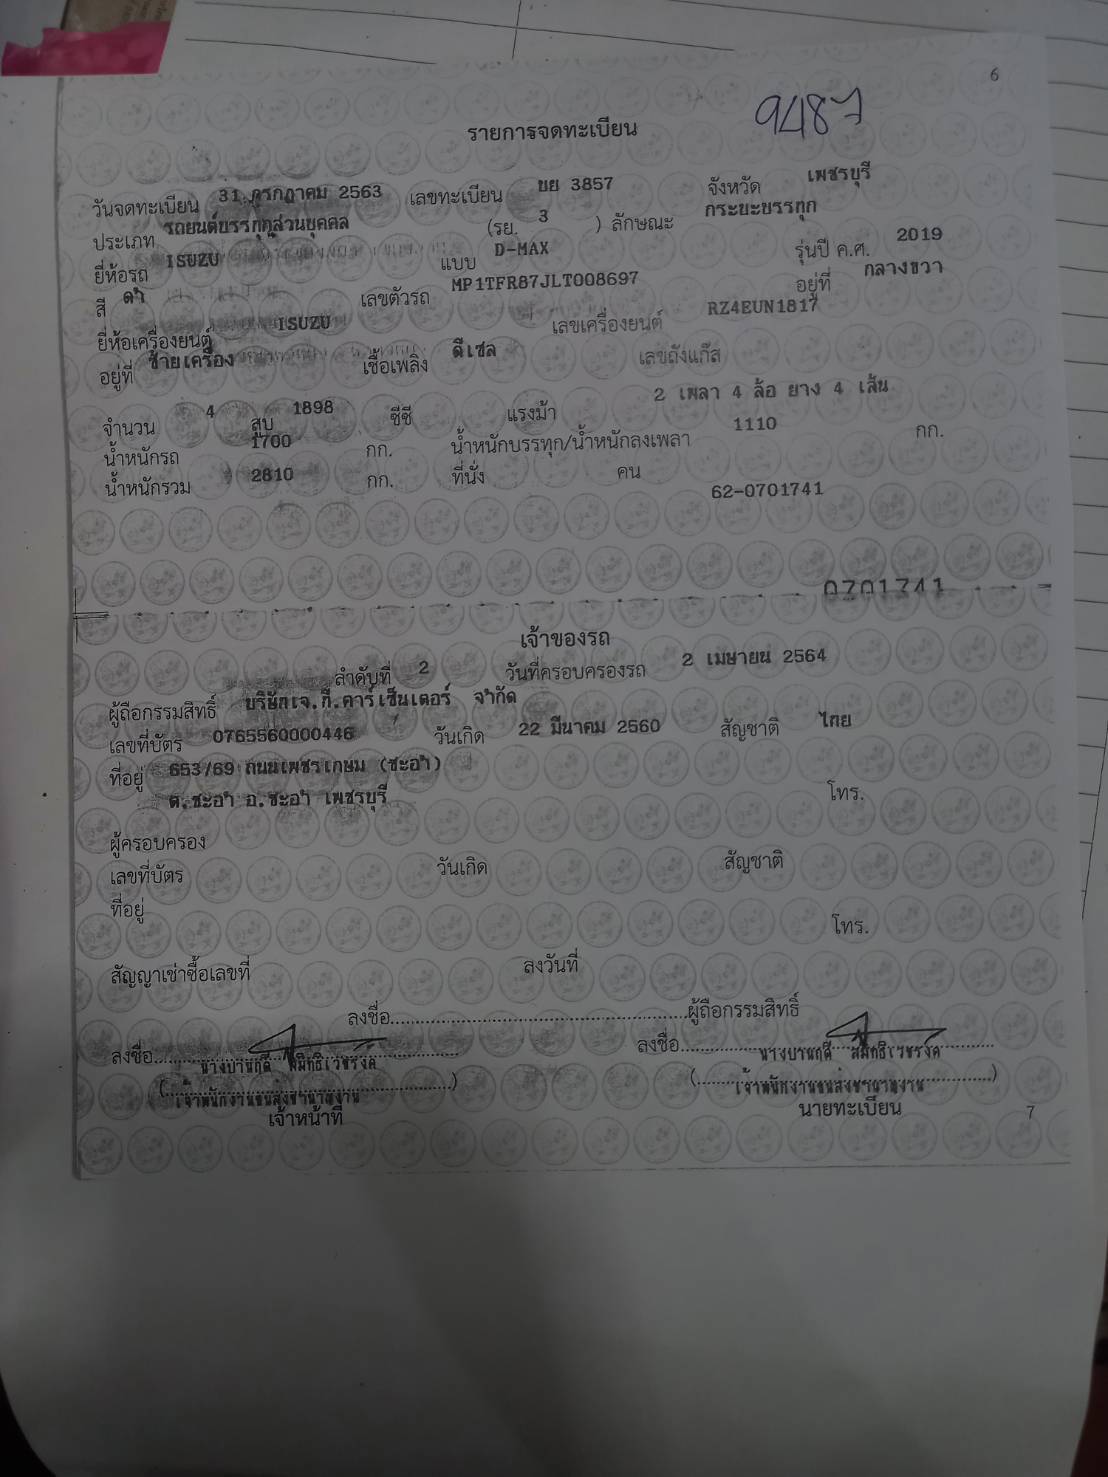 6
9487
รายการจดทะเบียน
วันจดทะเบียน 31 กรกฎาคม 2563 เลขทะเบียน ขย 3857 จังหวัด เพชรบุรี
ประเภท รถยนต์บรรทุกส่วนบุคคล (รย. 3 ) ลักษณะ กระบะบรรทุก
ยี่ห้อรถ ISUZU แบบ D-MAX รุ่นปี ค.ศ. 2019
สี ดำ เลขตัวรถ MP1TFR87JLT008697 อยู่ที่ กลางขวา
ยี่ห้อเครื่องยนต์ ISUZU เลขเครื่องยนต์ RZ4EUN1817
อยู่ที่ ซ้ายเครื่อง เชื้อเพลิง ดีเซล เลขถังแก๊ส
จำนวน 4 สูบ 1898 ซีซี แรงม้า 2 เพลา 4 ล้อ ยาง 4 เส้น
น้ำหนักรถ 1700 กก. น้ำหนักบรรทุก/น้ำหนักลงเพลา 1110 กก.
น้ำหนักรวม 2810 กก. ที่นั่ง คน
62-0701741
0701741
เจ้าของรถ
ลำดับที่ 2 วันที่ครอบครองรถ 2 เมษายน 2564
ผู้ถือกรรมสิทธิ์ บริษัทเจ.ที.คาร์เซ็นเตอร์ จำกัด
เลขที่บัตร 0765560000446 วันเกิด 22 มีนาคม 2560 สัญชาติ ไทย
ที่อยู่ 653/69 ถนนเพชรเกษม (ชะอำ)
ต.ชะอำ อ.ชะอำ เพชรบุรี โทร.
ผู้ครอบครอง
เลขที่บัตร วันเกิด สัญชาติ
ที่อยู่
โทร.
สัญญาเช่าซื้อเลขที่ ลงวันที่
ลงชื่อ ผู้ถือกรรมสิทธิ์
ลงชื่อ ลงชื่อ
(เจ้าพนักงานขนส่งชำนาญงาน) (เจ้าพนักงานขนส่งชำนาญงาน)
เจ้าหน้าที่ นายทะเบียน
7